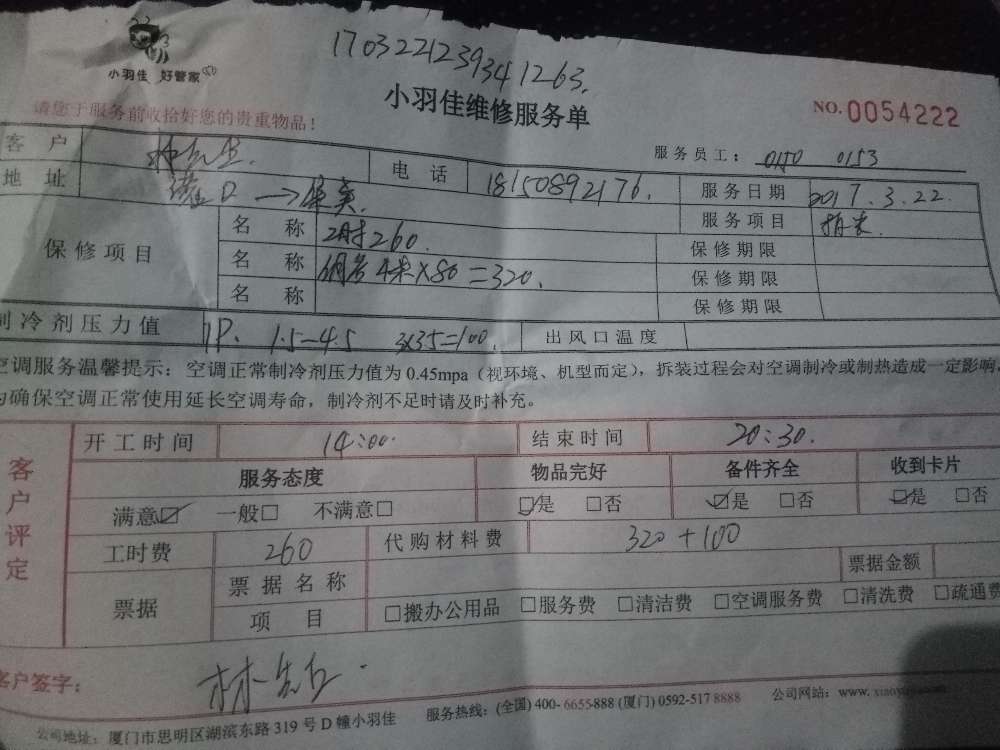 小羽佳 好管家
170322123934 1263.
小羽佳维修服务单
请您于服务前收拾好您的贵重物品！
NO.0054222
服务员工： 0150 0153
客 户 林先生. 电 话 18150892176. 服务日期 2017.3.22.
地 址 → 集美. 服务项目
保修项目 名 称 260. 保修期限
名 称 铜管4米×80=320. 保修期限
名 称 保修期限
制冷剂压力值 1P. 1.5-4.5 3x35=100. 出风口温度
空调服务温馨提示：空调正常制冷剂压力值为 0.45mpa（视环境、机型而定），拆装过程会对空调制冷或制热造成一定影响，
为确保空调正常使用延长空调寿命，制冷剂不足时请及时补充。
客户评定
开工时间 14:00. 结束时间 20:30.
服务态度 物品完好 备件齐全 收到卡片
满意☑ 一般□ 不满意□ ☑是 □否 ☑是 □否 ☑是 □否
工时费 260 代购材料费 320+100
票据 票据名称 票据金额
项 目 □搬办公用品 □服务费 □清洁费 □空调服务费 □清洗费 □疏通费
客户签字： 林先生.
公司地址：厦门市思明区湖滨东路 319 号 D 幢小羽佳 服务热线：(全国) 400-6655-888 (厦门) 0592-517 8888 公司网站：www.